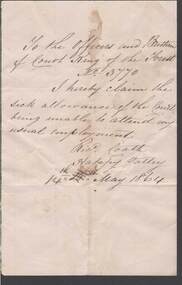 To the Officers and Brethren
of Court King of the Forest
No. 3770
I hereby claim the
sick allowance of the Court
being unable to attend my
usual employment.
Happy Valley
14th May 1864